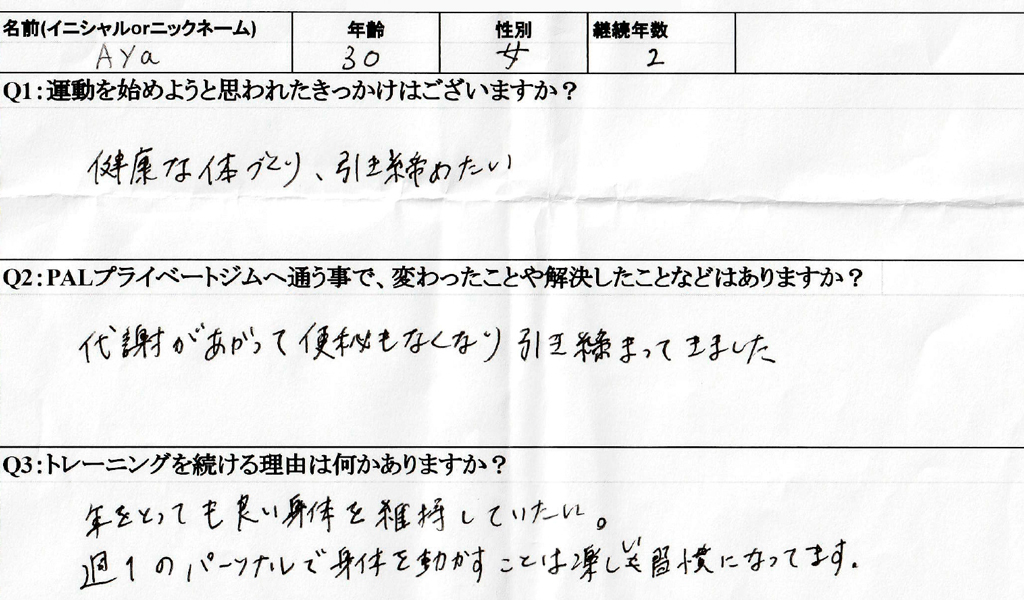 名前(イニシャルorニックネーム) 年齢 性別 継続年数
AYa 30 女 2
Q1:運動を始めようと思われたきっかけはございますか？
健康な体づくり、引き締めたい
Q2:PALプライベートジムへ通う事で、変わったことや解決したことなどはありますか？
代謝があがって便秘もなくなり引き締まってきました
Q3:トレーニングを続ける理由は何かありますか？
年をとっても良い身体を維持していたい。
週1のパーソナルで身体を動かすことは楽しいし習慣になってます。